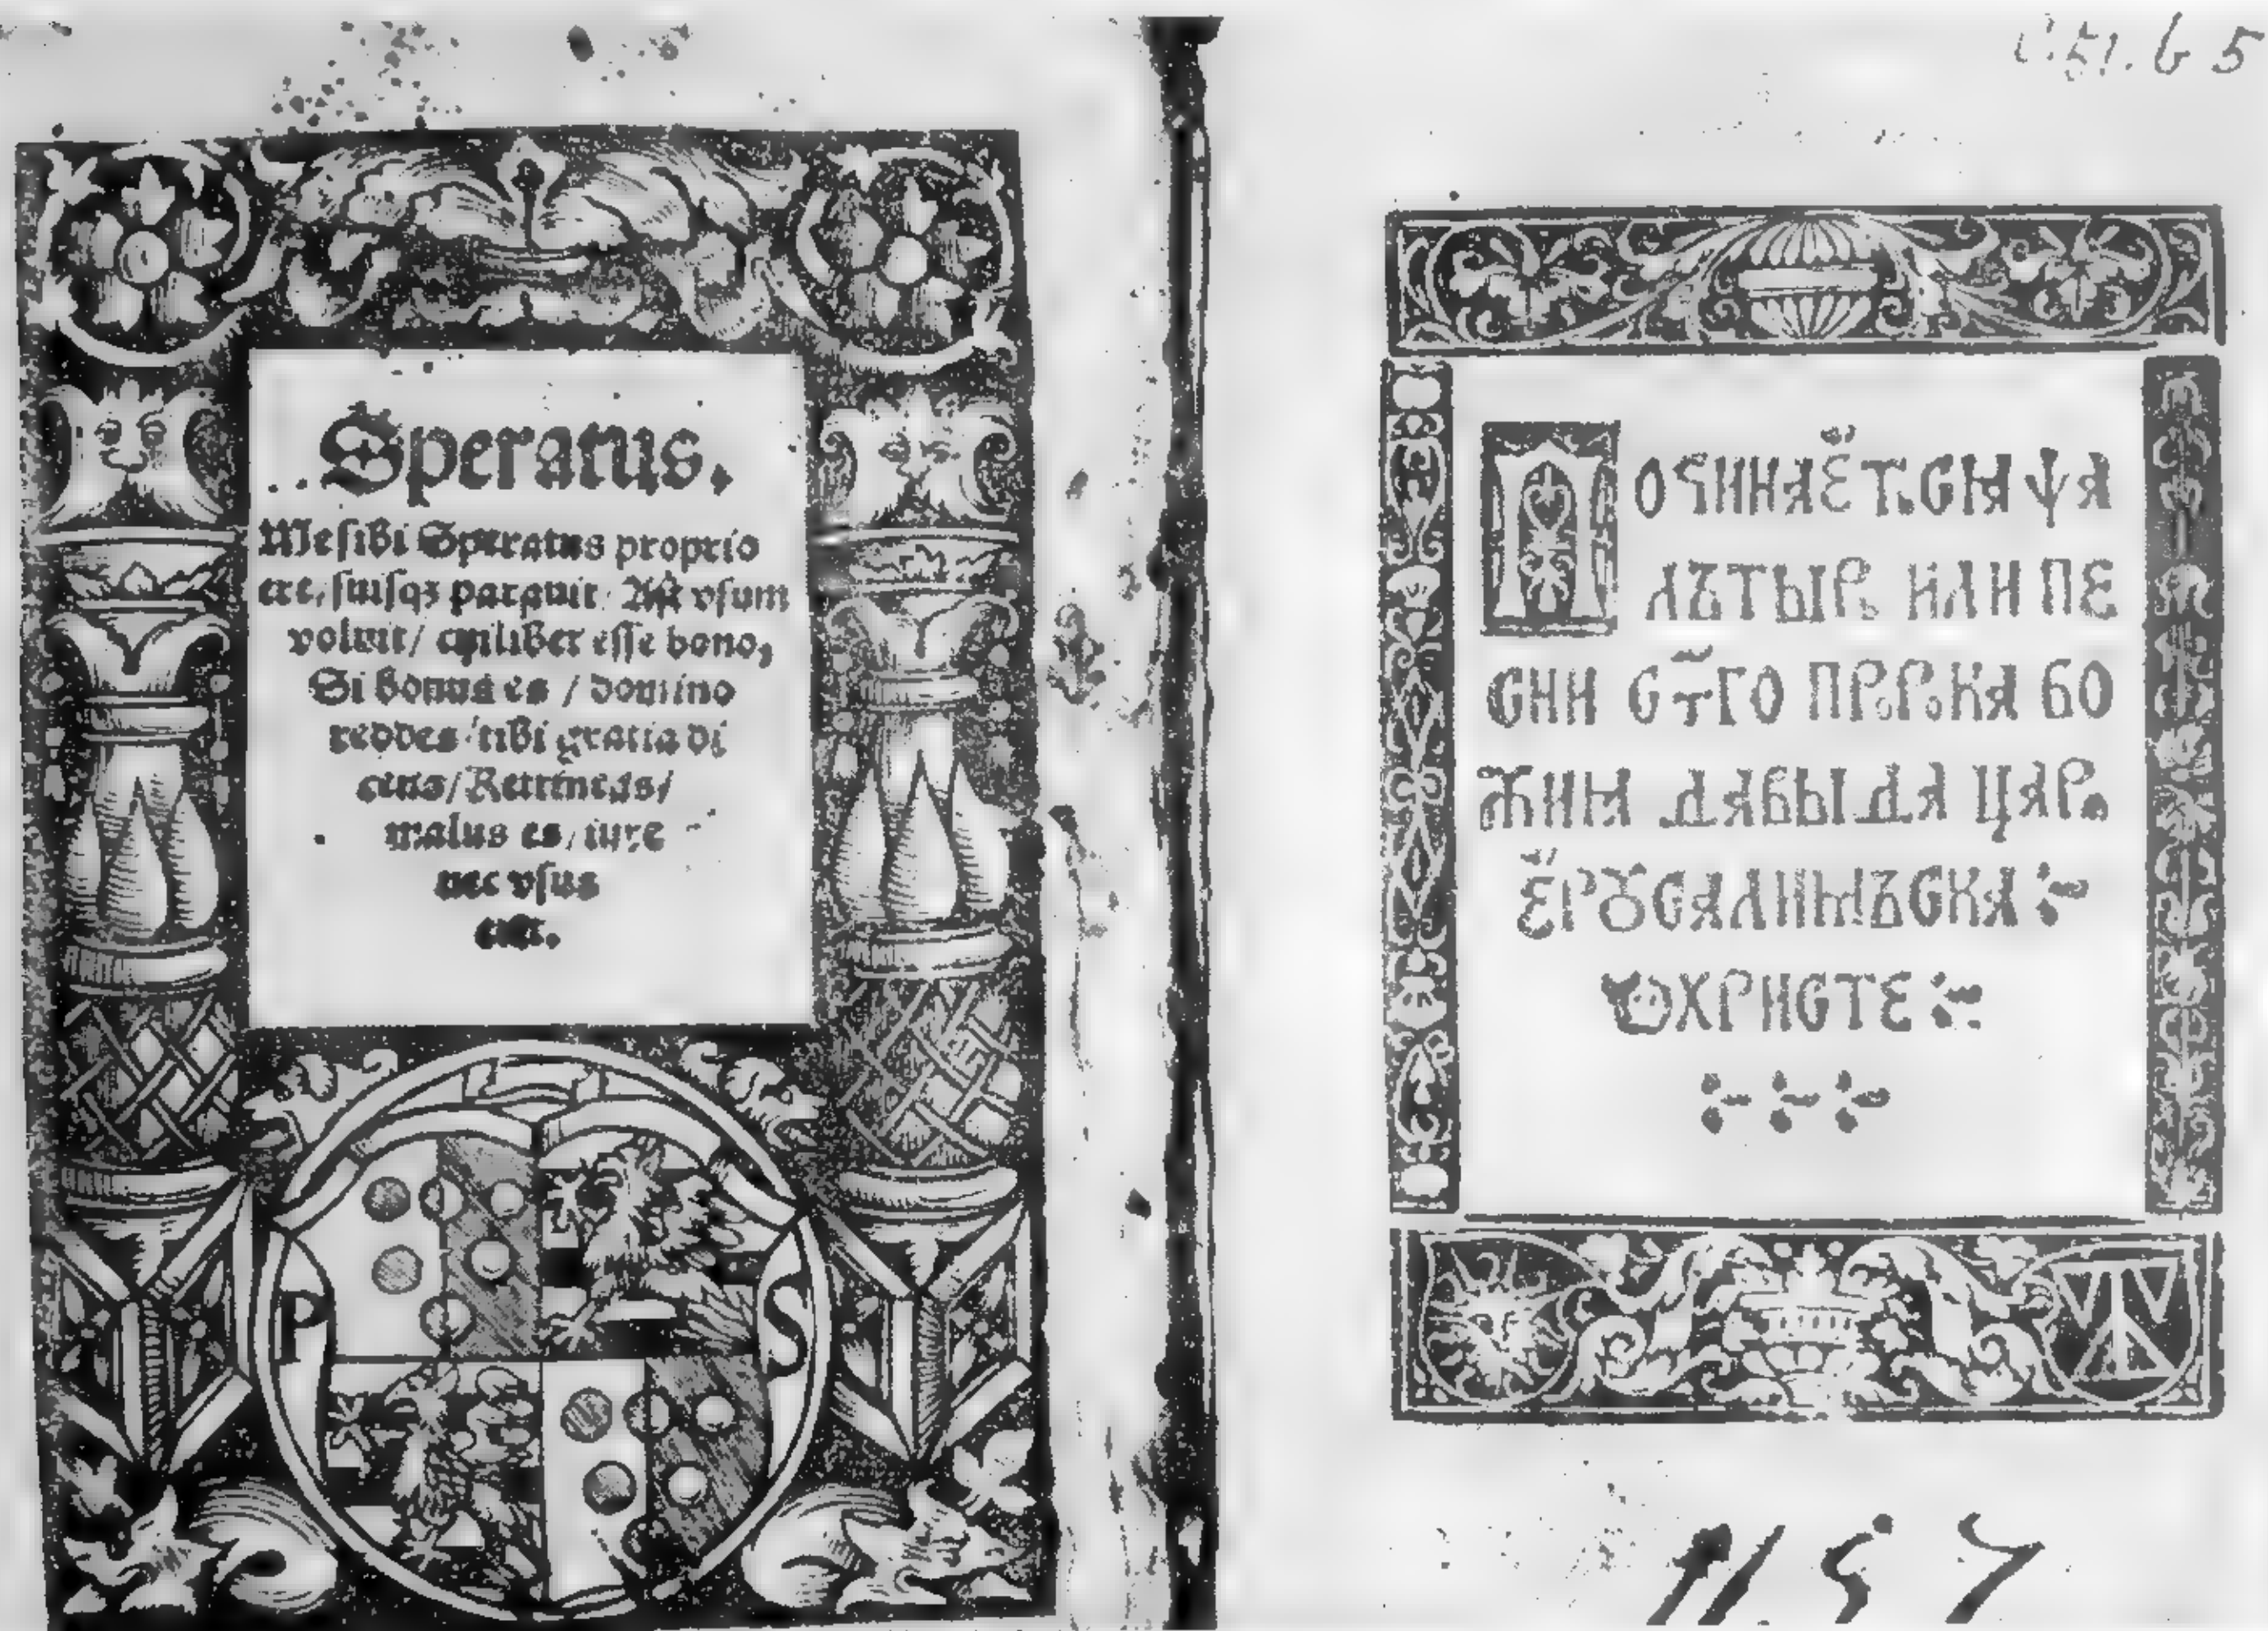 Speratus.
Me sibi Speratus proprio
ere, suisqꝫ parauit: Ast vsum
voluit / cuilibet esse bono,
Si bonus es / domino
reddes / tibi gratia di
cetur / Retineas /
malus es, iure
nec vsus
erit.
P S
C.51.b 5
ПОЧИНАЕТ.СꙖ ѰА
ЛЪТЫР. ИЛИ ПЕ
СНИ С҃ТГО ПР.Р.КА БО
ЖИꙖ ДАВЫДА ЦАР.
ЕРꙊСАЛИМЪСКА
ѠХРИСТЕ